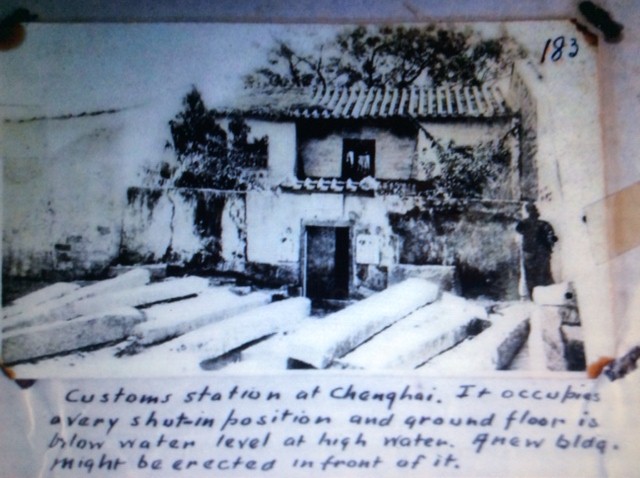 183
Customs station at Changhai. It occupies
a very shut-in position and ground floor is
blow water level at high water. A new bldg.
might be erected in front of it.